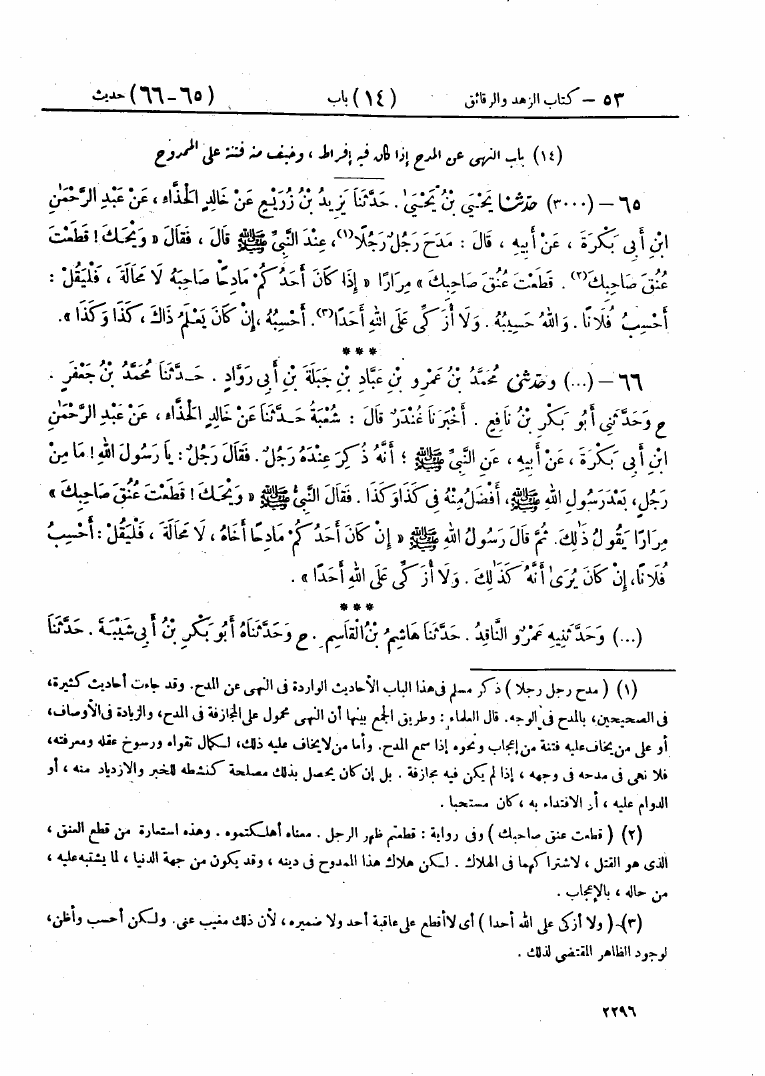 ٥٣ – كتاب الزهد والرقائق (١٤) باب (٦٥-٦٦) حديث
(١٤) باب النهى عن المدح إذا كان فيه إفراط ، وخيف منه فتنة على الممدوح
٦٥ – (٣٠٠٠) حَدَّثَنَا يَحْيَىٰ بْنُ يَحْيَىٰ . حَدَّثَنَا يَزِيدُ بْنُ زُرَيْعٍ عَنْ خَالِدٍ الْحَذَّاءِ ، عَنْ عَبْدِ الرَّحْمَٰنِ
ابْنِ أَبِى بَكْرَةَ ، عَنْ أَبِيهِ ، قَالَ : مَدَحَ رَجُلٌ رَجُلًا(١)، عِنْدَ النَّبِىِّ ﷺ قَالَ ، فَقَالَ « وَيْحَكَ ! قَطَعْتَ
عُنُقَ صَاحِبِكَ(٢) . قَطَعْتَ عُنُقَ صَاحِبِكَ » مِرَارًا « إِذَا كَانَ أَحَدُكُمْ مَادِحًا صَاحِبَهُ لَا مَحَالَةَ ، فَلْيَقُلْ :
أَحْسِبُ فُلَانًا . وَاللهُ حَسِيبُهُ . وَلَا أُزَكِّى عَلَى اللهِ أَحَدًا(٣). أَحْسِبُهُ ، إِنْ كَانَ يَعْلَمُ ذَاكَ ، كَذَا وَكَذَا » .
***
٦٦ – (...) وحَدَّثَنِى مُحَمَّدُ بْنُ عَمْرِو بْنِ عَبَّادِ بْنِ جَبَلَةَ بْنِ أَبِى رَوَّادٍ . حَدَّثَنَا مُحَمَّدُ بْنُ جَعْفَرٍ .
ح وَحَدَّثَنِى أَبُو بَكْرِ بْنُ نَافِعٍ . أَخْبَرَنَا غُنْدَرٌ قَالَ : شُعْبَةُ حَدَّثَنَا عَنْ خَالِدٍ الْحَذَّاءِ ، عَنْ عَبْدِ الرَّحْمَٰنِ
ابْنِ أَبِى بَكْرَةَ ، عَنْ أَبِيهِ ، عَنِ النَّبِىِّ ﷺ ؛ أَنَّهُ ذُكِرَ عِنْدَهُ رَجُلٌ . فَقَالَ رَجُلٌ : يَا رَسُولَ اللهِ ! مَا مِنْ
رَجُلٍ ، بَعْدَ رَسُولِ اللهِ ﷺ ، أَفْضَلُ مِنْهُ فِى كَذَا وَكَذَا . فَقَالَ النَّبِىُّ ﷺ « وَيْحَكَ ! قَطَعْتَ عُنُقَ صَاحِبِكَ »
مِرَارًا يَقُولُ ذَٰلِكَ . ثُمَّ قَالَ رَسُولُ اللهِ ﷺ « إِنْ كَانَ أَحَدُكُمْ مَادِحًا أَخَاهُ ، لَا مَحَالَةَ ، فَلْيَقُلْ : أَحْسِبُ
فُلَانًا ، إِنْ كَانَ يُرَىٰ أَنَّهُ كَذَٰلِكَ . وَلَا أُزَكِّى عَلَى اللهِ أَحَدًا » .
***
(...) وَحَدَّثَنِيهِ عَمْرٌو النَّاقِدُ . حَدَّثَنَا هَاشِمُ بْنُ الْقَاسِمِ . ح وَحَدَّثَنَاهُ أَبُو بَكْرِ بْنُ أَبِى شَيْبَةَ . حَدَّثَنَا
(١) ( مدح رجل رجلا ) ذكر مسلم فى هذا الباب الأحاديث الواردة فى النهى عن المدح. وقد جاءت أحاديث كثيرة،
فى الصحيحين، بالمدح فى الوجه. قال العلماء : وطريق الجمع بينها أن النهى محمول على المجازفة فى المدح، والزيادة فى الأوصاف،
أو على من يخاف عليه فتنة من إعجاب ونحوه إذا سمع المدح. وأما من لا يخاف عليه ذلك، لكمال تقواه ورسوخ عقله ومعرفته،
فلا نهى فى مدحه فى وجهه ، إذا لم يكن فيه مجازفة . بل إن كان يحصل بذلك مصلحة كنشطه للخير والازدياد منه ، أو
الدوام عليه ، أو الاقتداء به ، كان مستحبا .
(٢) ( قطعت عنق صاحبك ) وفى رواية : قطعتم ظهر الرجل . معناه أهلكتموه . وهذه استعارة من قطع العنق ،
الذى هو القتل ، لاشتراكهما فى الهلاك . لكن هلاك هذا الممدوح فى دينه ، وقد يكون من جهة الدنيا ، لما يشتبه عليه ،
من حاله ، بالإعجاب .
(٣) ( ولا أزكى على الله أحدا ) أى لا أقطع على عاقبة أحد ولا ضميره ، لأن ذلك مغيب عنى. ولكن أحسب وأظن،
لوجود الظاهر المقتضى لذلك .
٢٢٩٦